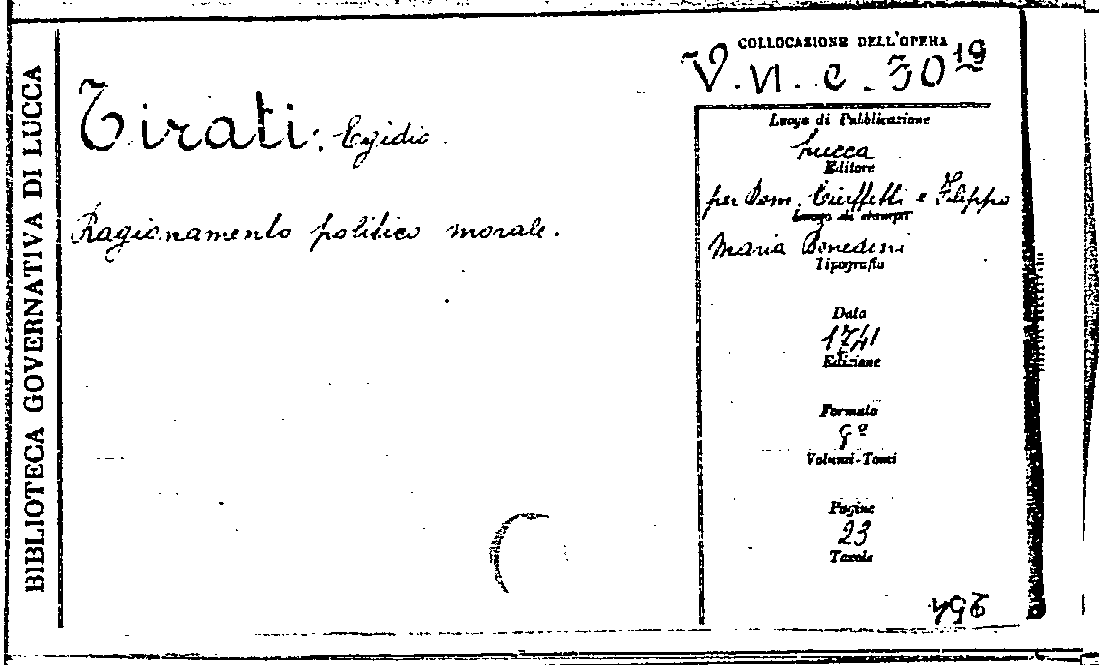 BIBLIOTECA GOVERNATIVA DI LUCCA
Tirati: Egidio.
Ragionamento politico morale.
COLLOCAZIONE DELL'OPERA
V. VI. C. 30 19
Luogo di Pubblicazione
Lucca
Editore
per Dom. Ciuffetti e Filippo
Luogo di stampa
Maria Benedini
Tipografia
Data
1741
Edizione
Formato
8º
Volumi-Tomi
Pagine
23
Tavole